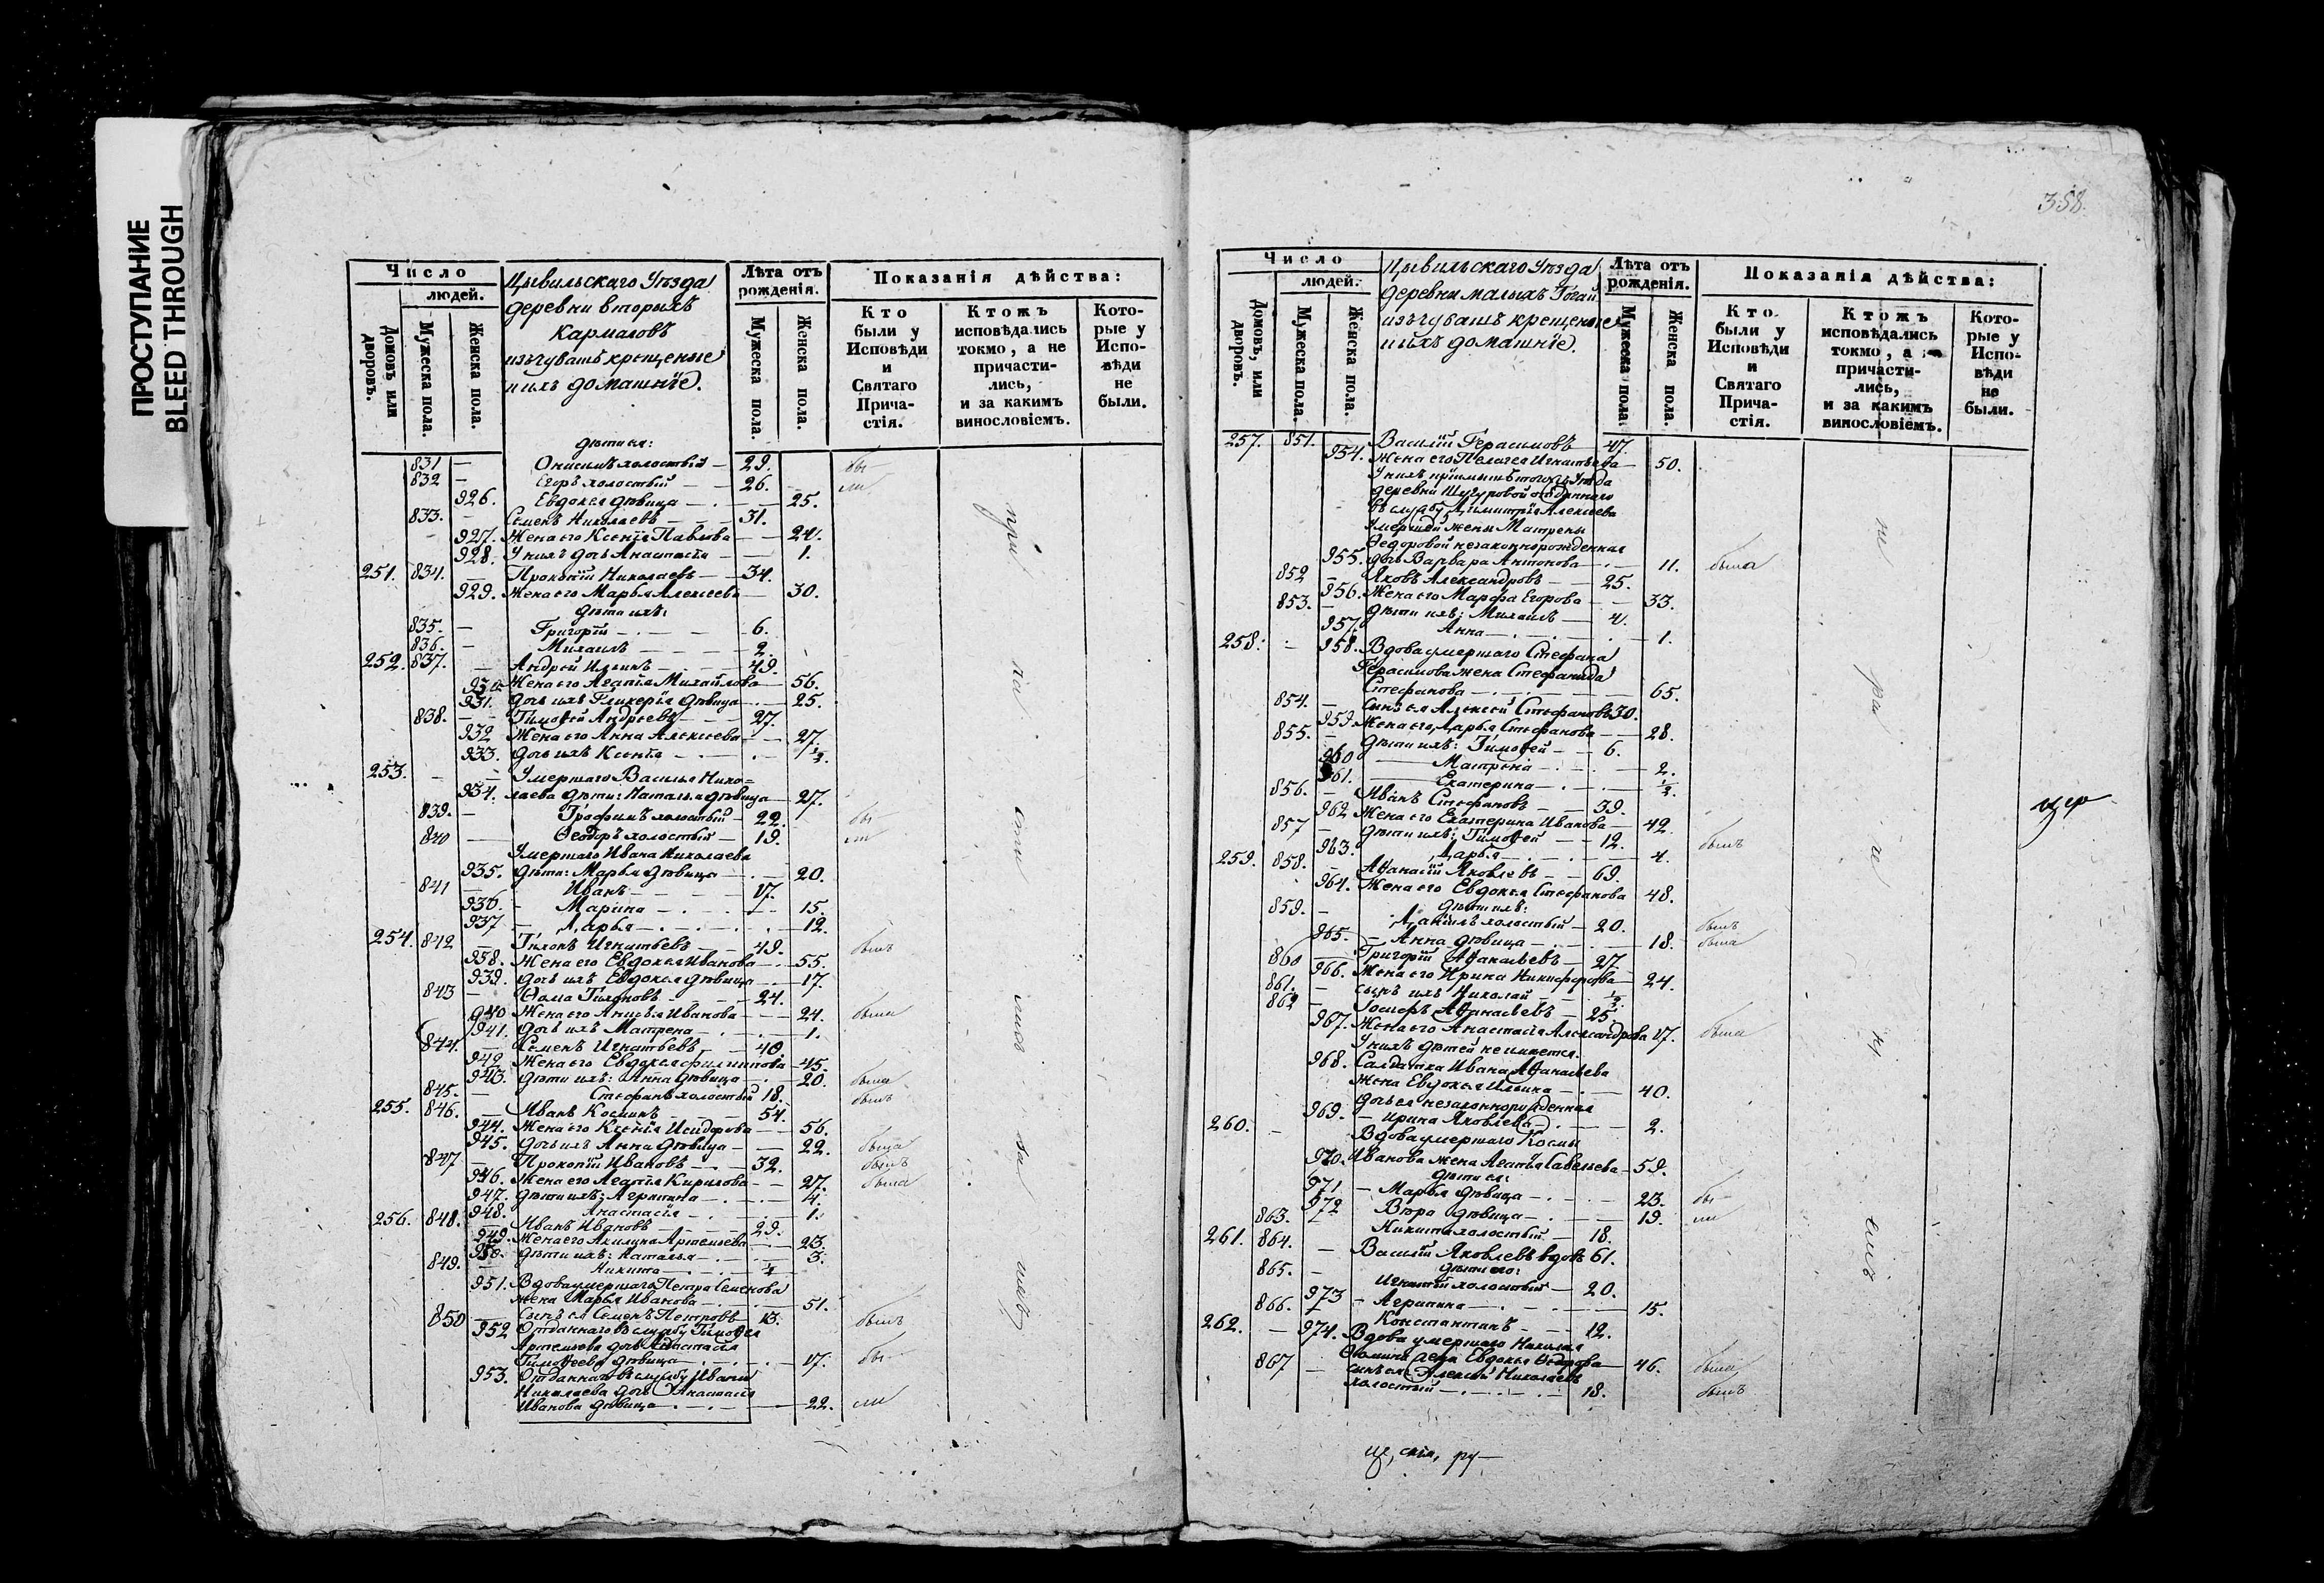 ПРОСТУПАНИЕ
BLEED THROUGH
358.
Число
людей.
Домовъ или дворовъ.
Мужеска пола.
Женска пола.
Цывильскаго Уѣзда
деревни вторыхъ
Кармаловъ
изъ чувашъ крещеные
и ихъ домашнїе.
Лѣта отъ рожденія.
Мужеска пола.
Женска пола.
Показанія дѣйства:
Кто были у Исповѣди и Святаго Прича-стія.
Ктожъ исповѣдались токмо, а не причасти-лись, и за какимъ винословіемъ.
Кото-рые у Испо-вѣди не были.
дѣти ея:
831 — Онисимъ холостый — 29. бы-
832 — Егоръ холостый — 26. ли
926. Евдокея дѣвица — 25.
833. — Семенъ Николаевъ — 31.
927. Жена его Ксенїя Павлова — 24.
928. У нихъ дочь Анастасїя — 1.
251. 834. — Прокопїй Николаевъ — 34.
929. Жена его Марья Алексеева — 30.
дѣти ихъ:
835. — Григорїй — 6.
836. — Михаилъ — 2.
252. 837. — Андрей Ильинъ — 49.
930. Жена его Агапїя Михайлова — 56.
931. Дочь ихъ Гликерїя дѣвица — 25.
838. — Тимоѳей Андреевъ — 27.
932 Жена его Анна Алексеева — 27.
933. Дочь ихъ Ксенїя — 1/2.
253. — — Умершаго Василья Нико=
934. лаева дѣти: Наталья дѣвица — 27.
839. — Трофимъ холостый — 22. бы-
840 — Ѳеодоръ холостый — 19. ли
Умершаго Ивана Николаева
935. дѣти: Марья дѣвица — 20.
841 — Иванъ — 17.
936. — Марина — 15.
937 — Дарья — 12.
254. 842 — Тихонъ Игнатьевъ — 49. былъ
938. Жена его Евдокея Иванова — 55.
939. Дочь ихъ Евдокея дѣвица — 17.
843 — Ѳома Тихоновъ — 24.
940 Жена его Анисья Иванова — 24. была
941. Дочь ихъ Матрена — 1.
844. — Семенъ Игнатьевъ — 40.
942 Жена его Евдокея Филиппова — 45.
943. Дѣти ихъ: Анна дѣвица — 20. была
845. — Стефанъ холостый 18. былъ
255. 846. — Иванъ Косминъ — 54.
944. Жена его Ксенїя Исидорова — 56.
945. Дочь ихъ Анна дѣвица — 22. была
847 — Прокопїй Ивановъ — 32. былъ
946. Жена его Агапїя Кирилова — 27. была
947. Дѣти ихъ: Агрипина — 4.
948. Анастасїя — 1.
256. 848. — Иванъ Ивановъ — 29.
949. Жена его Акилина Артемьева — 23.
950. Дѣти ихъ: Наталья — 3.
849. — Никита —
951. Вдова умершаго Петра Семенова
жена Марья Иванова — 51.
850 — Сынъ ея Семенъ Петровъ — 13. былъ
952 Отданнаго въ службу Тимоѳея
Артемьева дочь Анастасїя
Тимоѳеева дѣвица — 17. бы-
953. Отданнаго въ службу Ивана
Николаева дочь Анастасїя
Иванова дѣвица — 22. ли
Число
людей.
Домовъ, или дворовъ.
Мужеска пола.
Женска пола.
Цывильскаго Уѣзда
деревни малыхъ
изъ чувашъ крещеные
и ихъ домашнїе.
Лѣта отъ рожденія.
Мужеска пола.
Женска пола.
Показанія дѣйства:
Кто были у Исповѣди и Святаго Прича-стія.
Ктожъ исповѣдались токмо, а не причасти-лись, и за какимъ винословіемъ.
Кото-рые у Испо-вѣди не были.
257. 851. Василїй Герасимовъ — 47.
954. Жена его Пелагея Игнатьева — 50.
У нихъ прїемышъ тогожъ Уѣзда
деревни Шугуровой отданнаго
въ службу Димитрїя Алексеева
умершей жены Матрены
Ѳедоровой незаконнорожденная
955. дочь Варвара Антонова — 11. была
852 — Яковъ Александровъ — 25.
956. Жена его Марфа Егорова — 33.
853. — Дѣти ихъ: Михаилъ — 4.
957. Анна — 1.
258. — 958. Вдова умершаго Стефана
Герасимова жена Стефанида
Стефанова — 65.
854. — Сынъ ея Алексей Стефановъ 30.
959. Жена его Дарья Стефанова — 28.
855. — Дѣти ихъ: Тимоѳей — 6.
960 — Матрена — 2.
961. — Екатерина — 1/2.
856. — Иванъ Стефановъ — 39.
962 Жена его Екатерина Иванова — 42.
857 — Дѣти ихъ: Тимоѳей — 12. былъ
963. Дарья — 4.
259. 858. — Аѳанасїй Яковлевъ — 69.
964. Жена его Евдокея Стефанова 48.
Дѣти ихъ:
859. — Данїилъ холостый — 20. былъ
965. — Анна дѣвица — 18. была
860 — Григорїй Аѳанасьевъ — 27.
966. Жена его Ирина Никифорова — 24.
861. — сынъ ихъ Николай — 1/2.
862 — Іосифъ Аѳанасьевъ — 25.
967. Жена его Анастасїя Александрова 17. была
У нихъ дѣтей не имеется.
968. Салдатка Ивана Аѳанасьева
жена Евдокея Ильина — 40.
дочь ея незаконнорожденная
969. — Ирина Яковлева — 2.
260. — Вдова умершаго Космы
970. Иванова жена Агапїя Савельева — 59.
Дѣти ея:
971. — Марья дѣвица — 23. бы-
972 — Вѣра дѣвица — 19. ли
863. — Никита холостый — 18.
261. 864. — Василїй Яковлевъ вдовъ 61.
дѣти его:
865. — Игнатїй холостый — 20.
973 — Агрипина — 15.
866. — Константинъ — 12.
262. — 974. Вдова умершаго Николая
Ѳомина жена Евдокья Ѳедорова — 46. была
867 — сынъ ея Алексей Николаевъ
холостый — 18. былъ